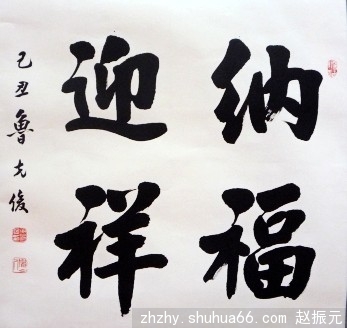 纳福
迎祥
己丑 鲁克俊
zhzhy.shuhua66.com 赵振元